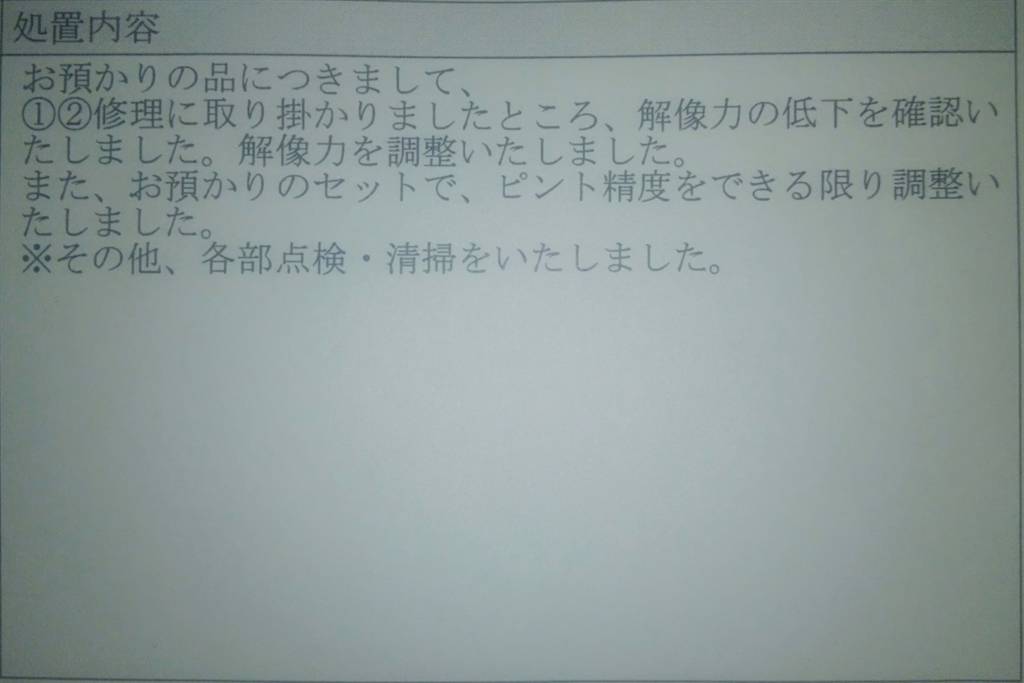 処置内容
お預かりの品につきまして、
①②修理に取り掛かりましたところ、解像力の低下を確認い
たしました。解像力を調整いたしました。
また、お預かりのセットで、ピント精度をできる限り調整い
たしました。
※その他、各部点検・清掃をいたしました。